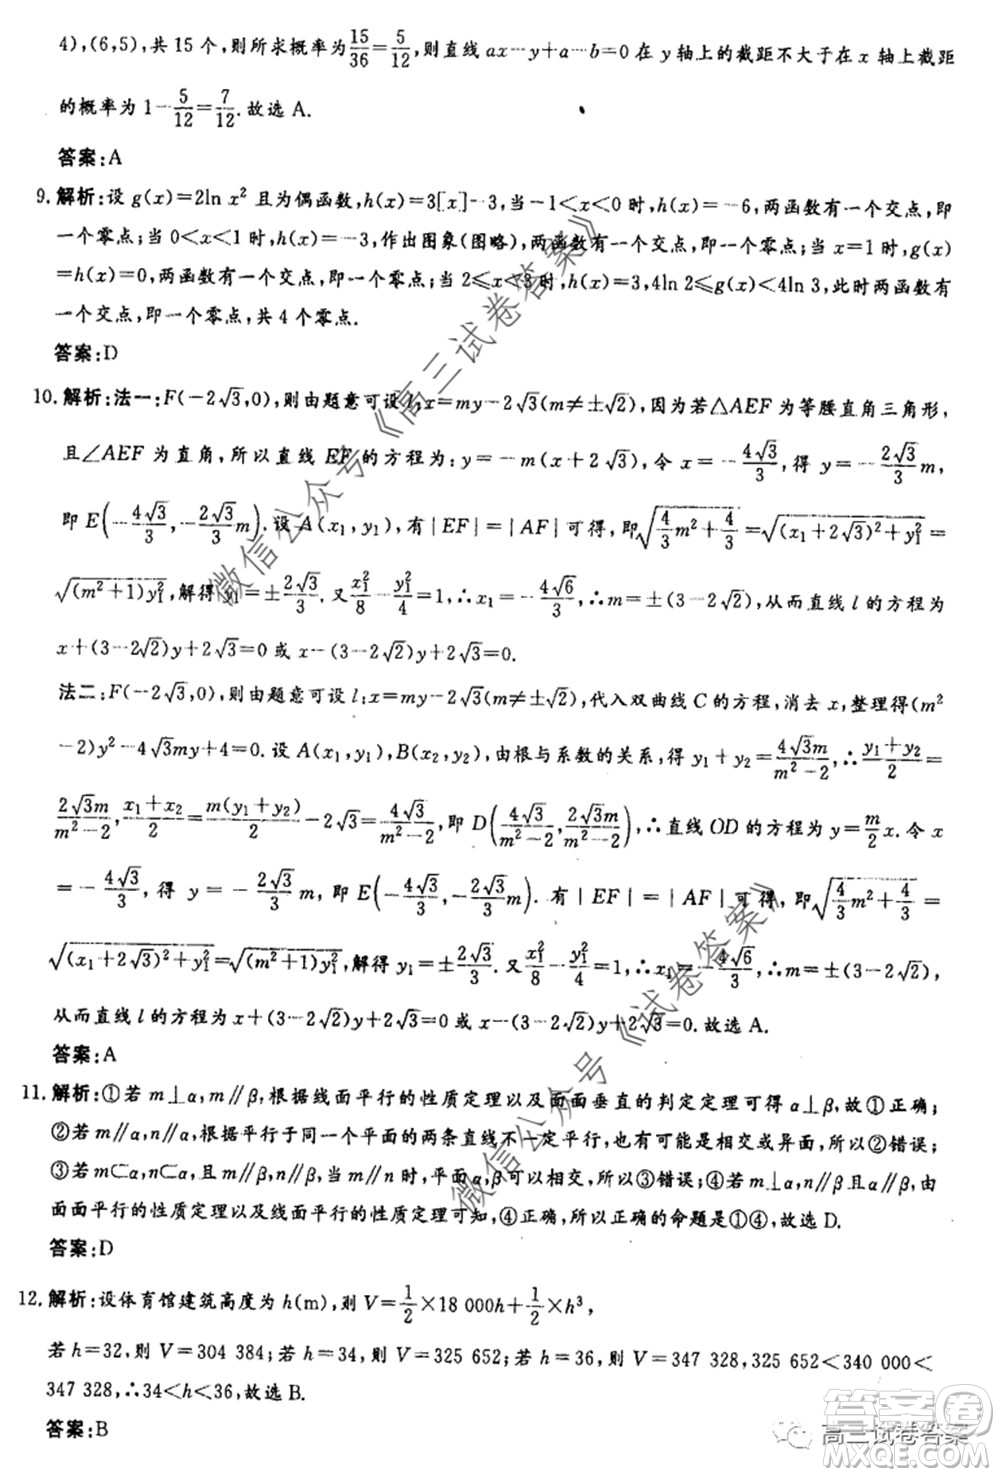 4),(6,5),共 15 个,则所求概率为15/36=5/12,则直线 ax-y+a-b=0 在 y 轴上的截距不大于在 x 轴上截距
的概率为 1-5/12=7/12.故选 A.
答案:A
9. 解析:设 g(x)=2ln x²且为偶函数,h(x)=3[x]-3,当-1<x<0时,h(x)=-6,两函数有一个交点,即
一个零点;当 0<x<1 时,h(x)=-3,作出图象(图略),两函数有一个交点,即一个零点;当 x=1 时,g(x)
=h(x)=0,两函数有一个交点,即一个零点;当 2≤x<3时,h(x)=3,4ln 2≤g(x)<4ln 3,此时两函数有
一个交点,即一个零点,共 4 个零点.
答案:D
10. 解析:法一:F(-2√3,0),则由题意可设 l:x=my-2√3(m≠±√2),因为若△AEF 为等腰直角三角形,
且∠AEF 为直角,所以直线 EF 的方程为:y=-m(x+2√3),令 x=-4√3/3,得 y=-2√3/3m,
即 E(-4√3/3,-2√3/3m).设 A(x₁,y₁),有|EF|=|AF|可得,即√(4/3m²+4/3)=√((x₁+2√3)²+y₁²)=
√((m²+1)y₁²),解得 y₁=±2√3/3.又x₁²/8-y₁²/4=1,∴x₁=-4√6/3,∴m=±(3-2√2),从而直线 l 的方程为
x+(3-2√2)y+2√3=0 或 x-(3-2√2)y+2√3=0.
法二:F(-2√3,0),则由题意可设 l:x=my-2√3(m≠±√2),代入双曲线 C 的方程,消去 x,整理得(m²
-2)y²-4√3my+4=0.设 A(x₁,y₁),B(x₂,y₂),由根与系数的关系,得 y₁+y₂=4√3m/(m²-2),∴(y₁+y₂)/2=
2√3m/(m²-2),(x₁+x₂)/2=m(y₁+y₂)/2-2√3=4√3/(m²-2),即 D(4√3/(m²-2),2√3m/(m²-2)),∴直线 OD 的方程为 y=m/2x.令 x
=-4√3/3,得 y=-2√3/3m,即 E(-4√3/3,-2√3/3m).有|EF|=|AF|可得,即√(4/3m²+4/3)=
√((x₁+2√3)²+y₁²)=√((m²+1)y₁²),解得 y₁=±2√3/3.又x₁²/8-y₁²/4=1,∴x₁=-4√6/3,∴m=±(3-2√2),
从而直线 l 的方程为 x+(3-2√2)y+2√3=0 或 x-(3-2√2)y+2√3=0.故选 A.
答案:A
11. 解析:①若 m⊥α,m∥β,根据线面平行的性质定理以及面面垂直的判定定理可得 α⊥β,故①正确;
②若 m∥α,n∥α,根据平行于同一个平面的两条直线不一定平行,也有可能是相交或异面,所以②错误;
③若 m⊂α,n⊂α,且 m∥β,n∥β,当 m∥n 时,平面 α,β可以相交,所以③错误;④若 m⊥α,n∥β,α∥β,由
面面平行的性质定理以及线面平行的性质定理可知,④正确,所以正确的命题是①④,故选 D.
答案:D
12. 解析:设体育馆建筑高度为 h(m),则 V=1/2×18 000h+1/2×h³,
若 h=32,则 V=304 384;若 h=34,则 V=325 652;若 h=36,则 V=347 328,325 652<340 000<
347 328,∴34<h<36,故选 B.
答案:B
微信公众号《高三试卷答案》
微信公众号《试卷答案》
高三试卷答案
答案卷
MXQE.COM